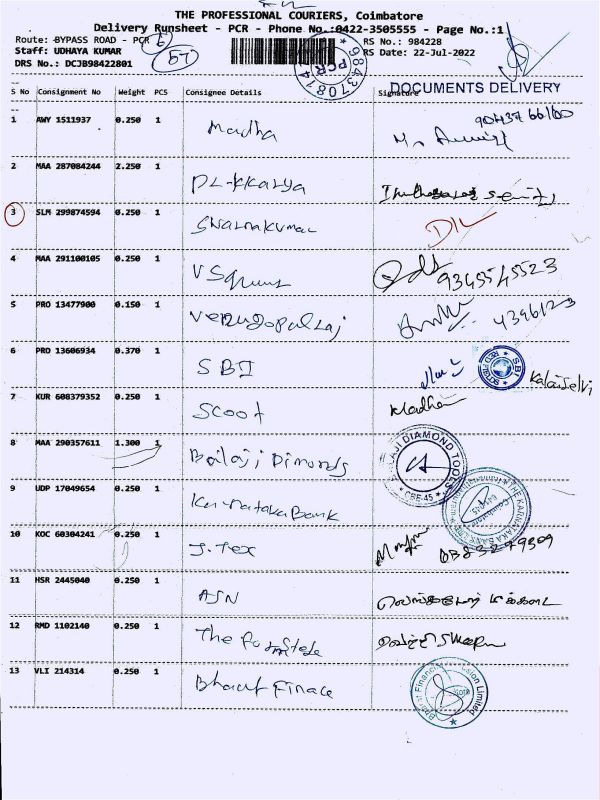 THE PROFESSIONAL COURIERS, Coimbatore
Delivery Runsheet - PCR - Phone No.:0422-3505555 - Page No.:1
Route: BYPASS ROAD - PCR
RS No.: 984228
Staff: UDHAYA KUMAR
RS Date: 22-Jul-2022
DRS No.: DCJB98422801
57
PCR
DOCUMENTS DELIVERY
S No Consignment No Weight PCS Consignee Details Signature
1 AWY 1511937 0.250 1 Madha
2 MAA 287084244 2.250 1
3 SLM 299874594 0.250 1
4 MAA 291100105 0.250 1 9345545523
5 PRO 13477900 0.150 1 Venugopalraj 4396123
6 PRO 13606934 0.370 1 SBI Kalaiselvi
7 KUR 608379352 0.250 1 Scoot Madha
8 MAA 290357611 1.300 1 Balaji Dimonds
BALAJI DIAMOND TOOLS
CBE-45
9 UDP 17049654 0.250 1 Karnataka Bank
10 KOC 60304241 0.250 1 J. Tex
11 HSR 2445040 0.250 1 ASN
12 RMD 1102140 0.250 1 The
13 VLI 214314 0.250 1 Bharat Finace